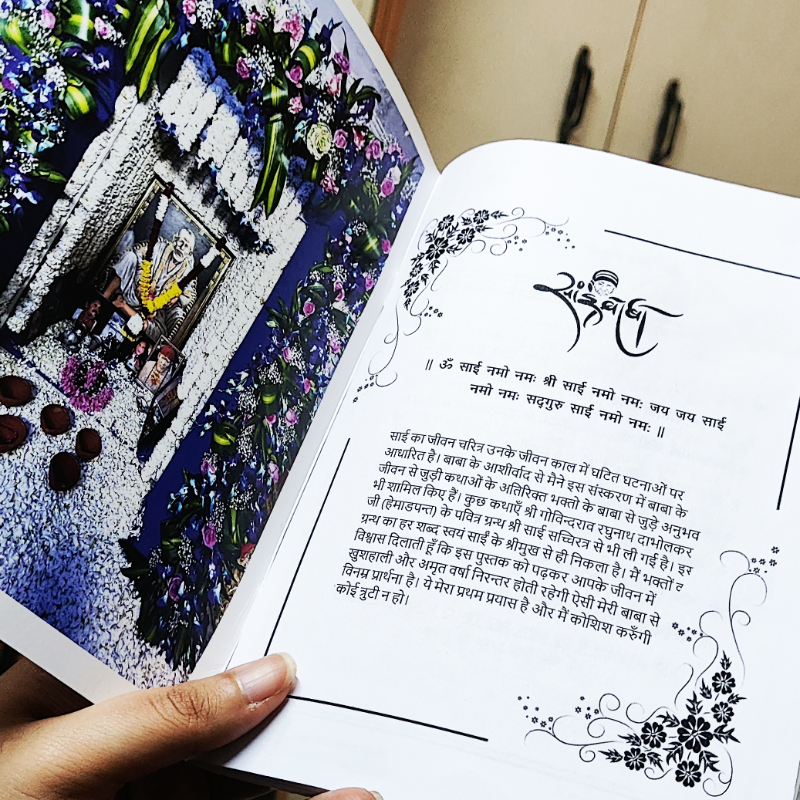 साईबाबा
॥ ॐ साई नमो नमः श्री साई नमो नमः जय जय साई
नमो नमः सद्गुरु साई नमो नमः ॥
साई का जीवन चरित्र उनके जीवन काल में घटित घटनाओं पर
आधारित है। बाबा के आशीर्वाद से मैने इस संस्करण में बाबा के
जीवन से जुड़ी कथाओं के अतिरिक्त भक्तो के बाबा से जुड़े अनुभव
भी शामिल किए हैं। कुछ कथाएँ श्री गोविन्दराव रघुनाथ दाभोलकर
जी (हेमाडपन्त) के पवित्र ग्रन्थ श्री साई सच्चिरत्र से भी ली गई है। इस
ग्रन्थ का हर शब्द स्वयं साईं के श्रीमुख से ही निकला है। मैं भक्तों
विश्वास दिलाती हूँ कि इस पुस्तक को पढ़कर आपके जीवन में
खुशहाली और अमृत वर्षा निरन्तर होती रहेगी ऐसी मेरी बाबा से
विनम्र प्रार्थना है। ये मेरा प्रथम प्रयास है और मैं कोशिश करुँगी
कोई त्रुटी न हो।